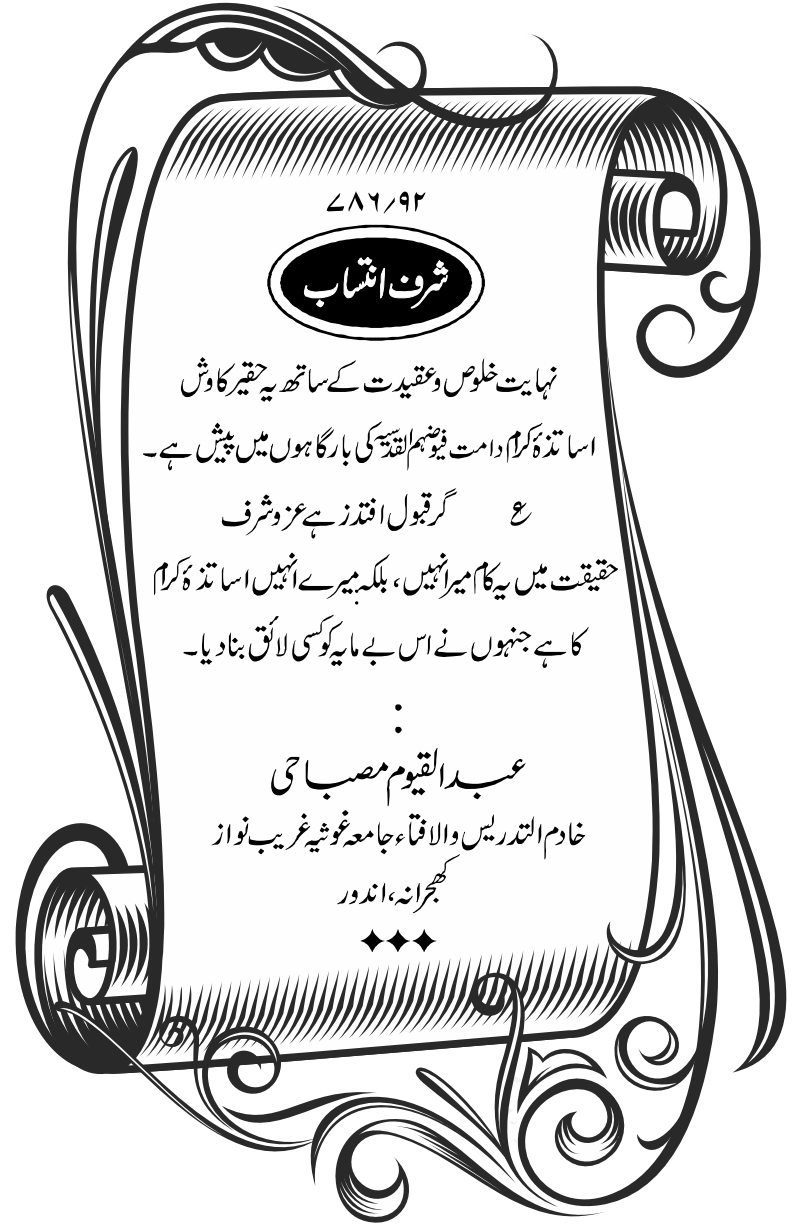 ۷۸۶/۹۲
شرف انتساب
نہایت خلوص و عقیدت کے ساتھ یہ حقیر کاوش
اساتذۂ کرام دامت فیوضہم القدسیہ کی بارگاہوں میں پیش ہے۔
ع گر قبول افتد زہے عز و شرف
حقیقت میں یہ کام میرا نہیں، بلکہ میرے انہیں اساتذۂ کرام
کا ہے جنہوں نے اس بے مایہ کو کسی لائق بنا دیا۔
:
عبدالقیوم مصباحی
خادم التدریس والافتاء جامعہ غوثیہ غریب نواز
کھجرانہ، اندور